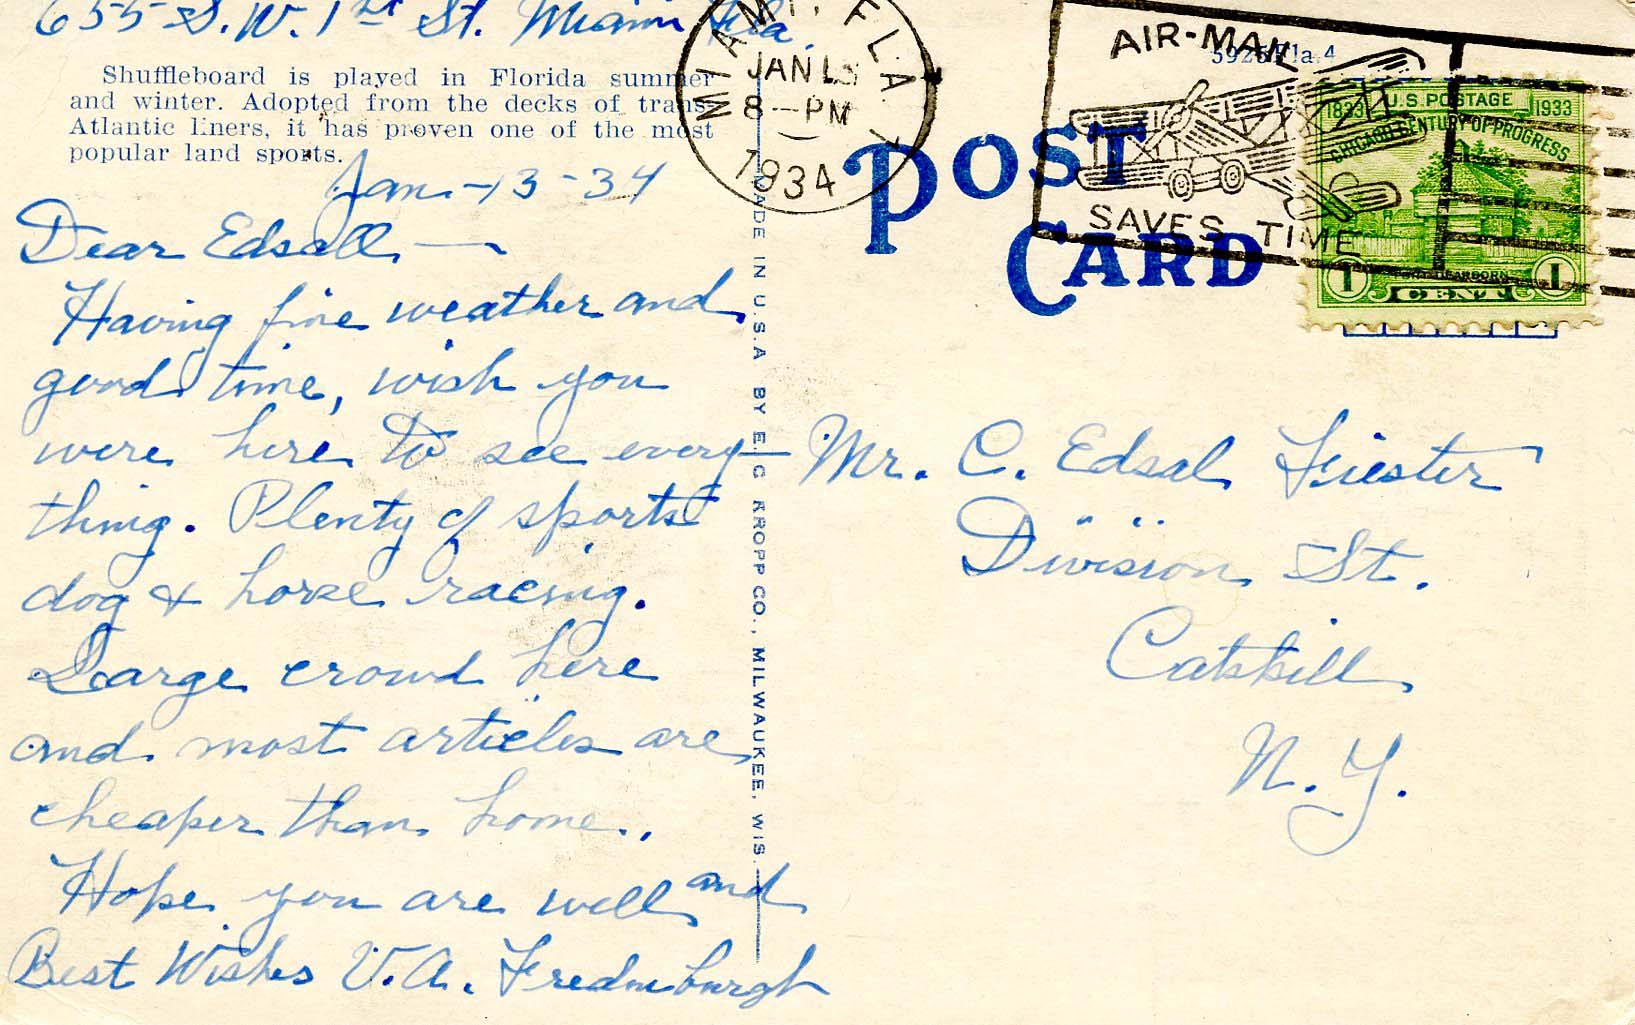 655 S.W. 1st St. Miami Fla.
Shuffleboard is played in Florida summer
and winter. Adopted from the decks of trans-
Atlantic liners, it has proven one of the most
popular land sports.
Jan-13-34
Dear Edsall, —
Having fine weather and
good time, wish you
were here to see every-
thing. Plenty of sports
dog & horse racing.
Large crowd here
and most articles are
cheaper than home.
Hope you are well and
Best Wishes V.A. Fredenburgh
MADE IN U.S.A BY E. C. KROPP CO., MILWAUKEE, WIS.
MIAMI, FLA.
JAN
8—PM
1934
AIR-MAIL
SAVES TIME
POST
CARD
U.S. POSTAGE
1833 1933
CHICAGO CENTURY OF PROGRESS
FORT DEARBORN
1 CENT 1
Mr. C. Edsal Fiester
Division St.
Catskill,
N. Y.